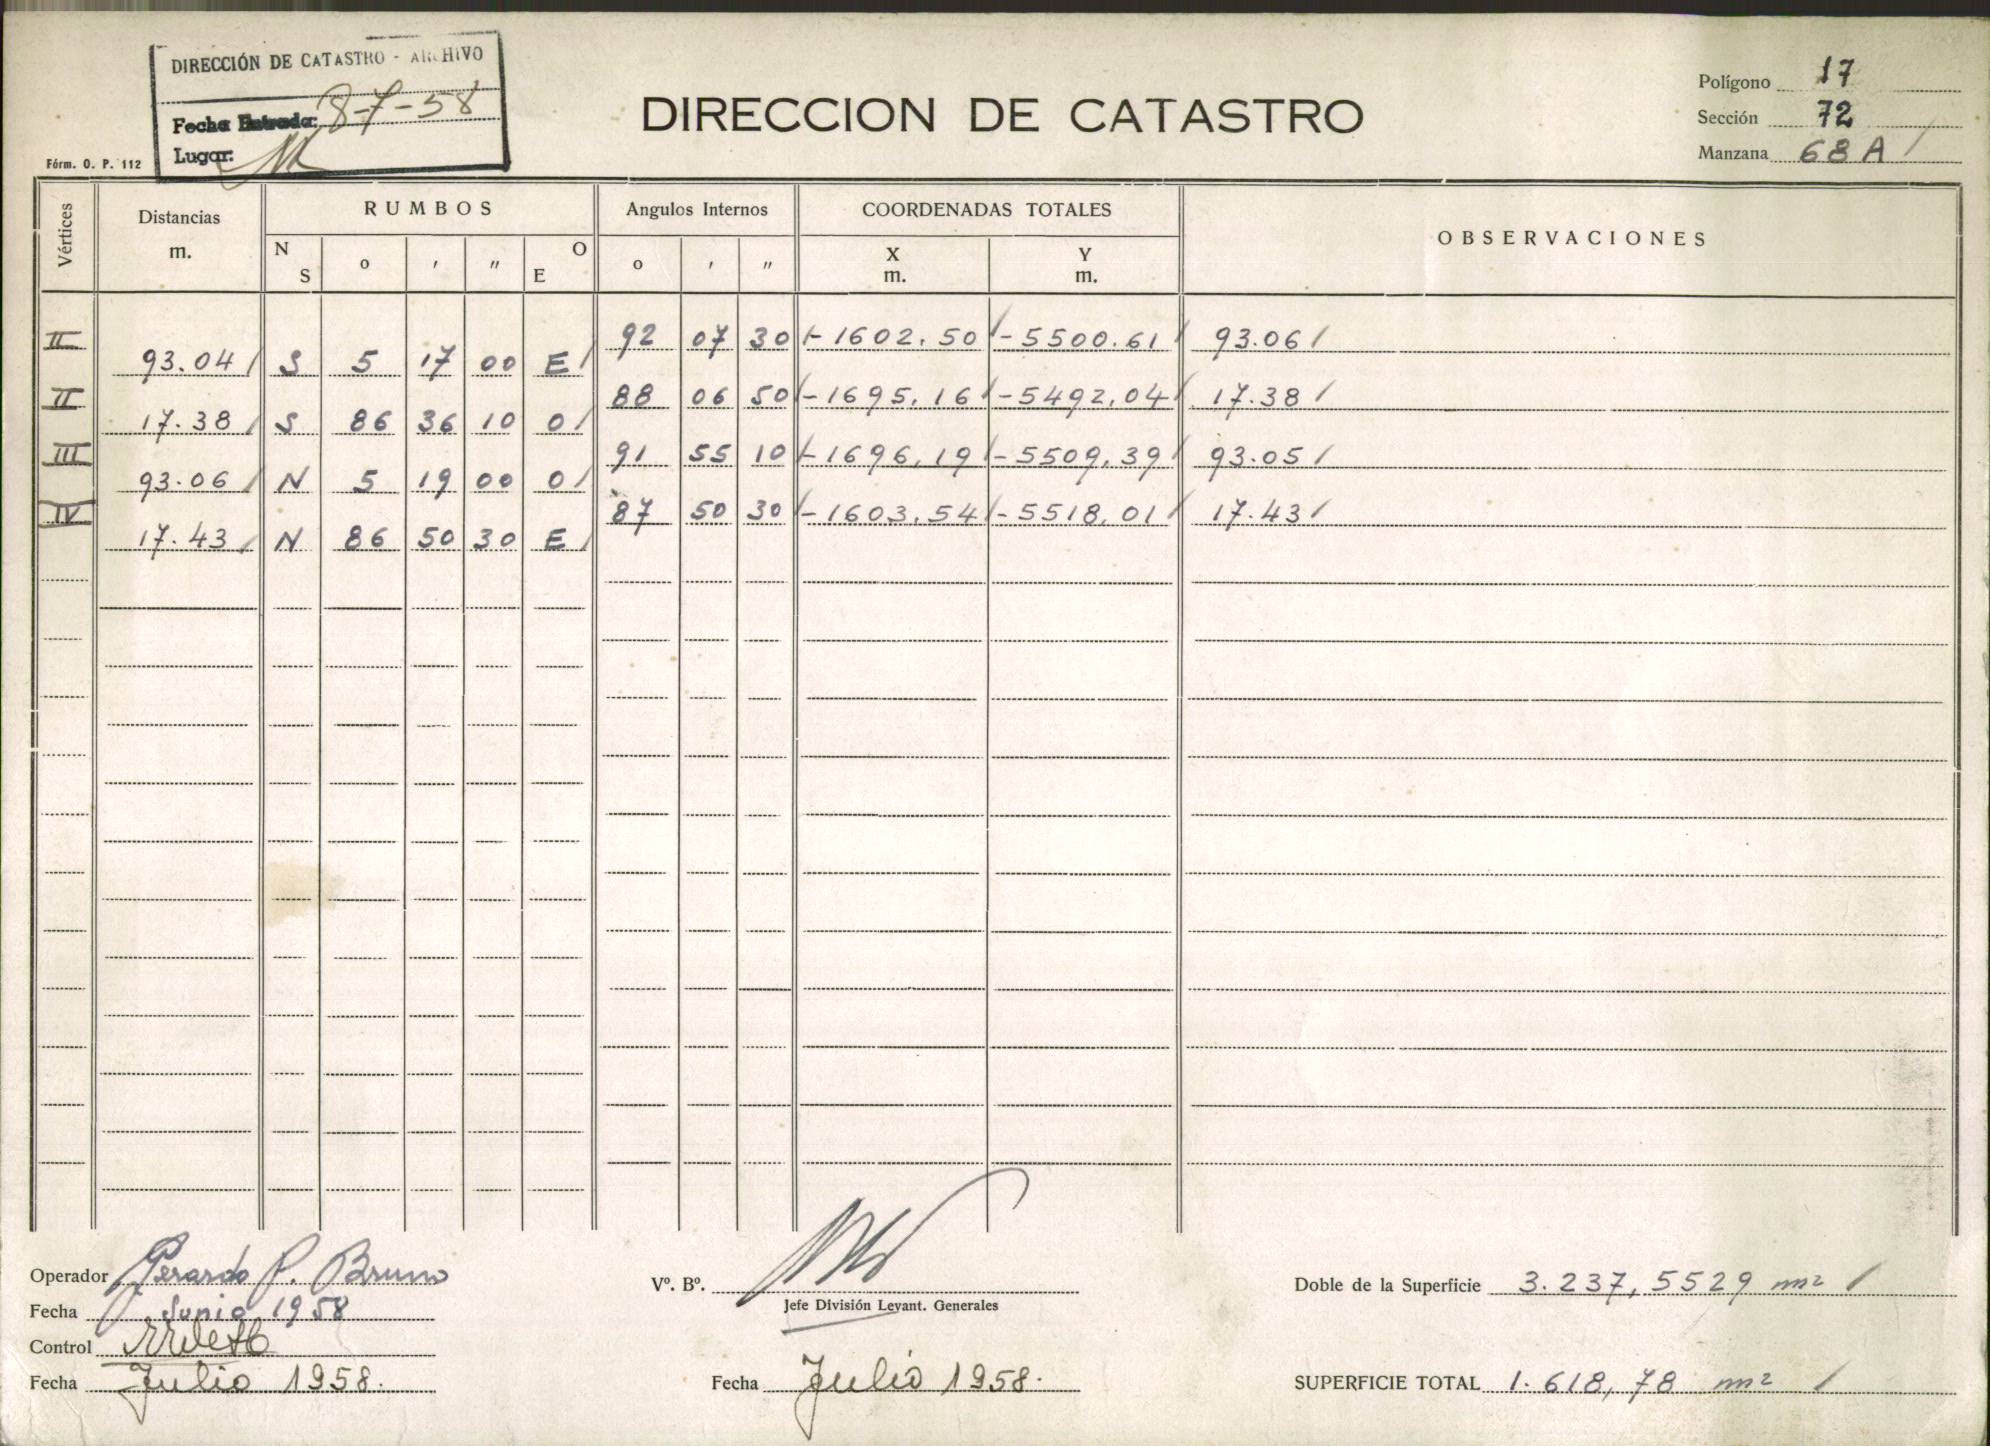 DIRECCIÓN DE CATASTRO - ARCHIVO
Fecha Entrada: 8-7-58
Lugar:
Fórm. O. P. 112
DIRECCION DE CATASTRO
Polígono 17
Sección 72
Manzana 68 A
Vértices Distancias m. RUMBOS Angulos Internos COORDENADAS TOTALES OBSERVACIONES
N S o ' " O E o ' " X m. Y m.
II 92 07 30 -1602.50 -5500.61 93.06
93.04 S 5 17 00 E
II 88 06 50 -1695.16 -5492.04 17.38
17.38 S 86 36 10 O
III 91 55 10 -1696.19 -5509.39 93.05
93.06 N 5 19 00 O
IV 87 50 30 -1603.54 -5518.01 17.43
17.43 N 86 50 30 E
Operador Gerardo P. Bruno
Fecha Junio 1958
Control
Fecha Julio 1958.
Vº. Bº.
Jefe División Levant. Generales
Fecha Julio 1958.
Doble de la Superficie 3.237,5529 m2
SUPERFICIE TOTAL 1.618,78 m2